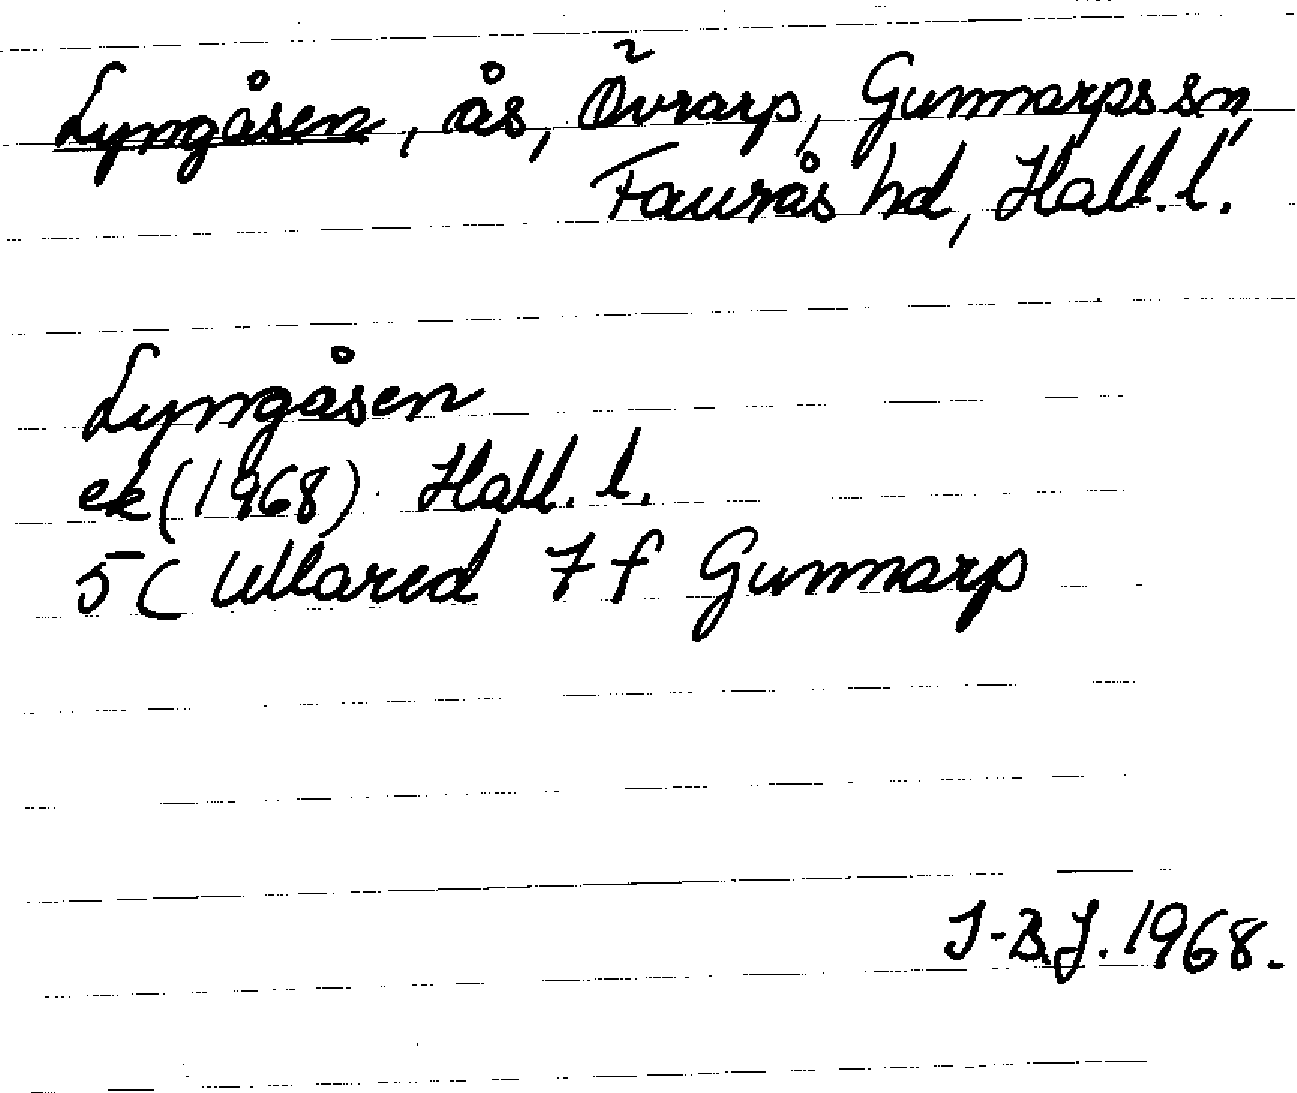 Lyngåsen, ås, Övrarp, Gunnarps sn,
Faurås hd, Hall. l.
Lyngåsen
ek (1968) Hall. l.
5C Ullared 7 f Gunnarp
I-B.J. 1968.